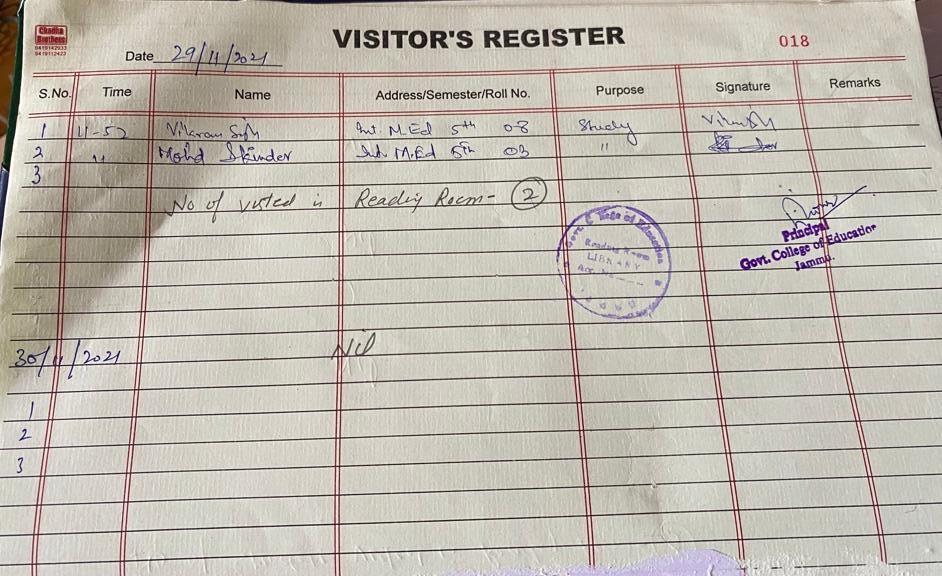 Chadha
Brothers
9419142933
9419112423
VISITOR'S REGISTER
018
Date 29/11/2021
S.No. Time Name Address/Semester/Roll No. Purpose Signature Remarks
1 11-52 Vikram Singh Int. M.Ed 5th 08 Study
2 " Mohd Skinder Int. M.Ed 5th 03 "
3
No of visted in Reading Room- 2
Principal
Govt. College of Education
Jammu.
Govt. College of Education
Reading Room
LIBRARY
Acc. No.
30/11/2021 Nil
1
2
3